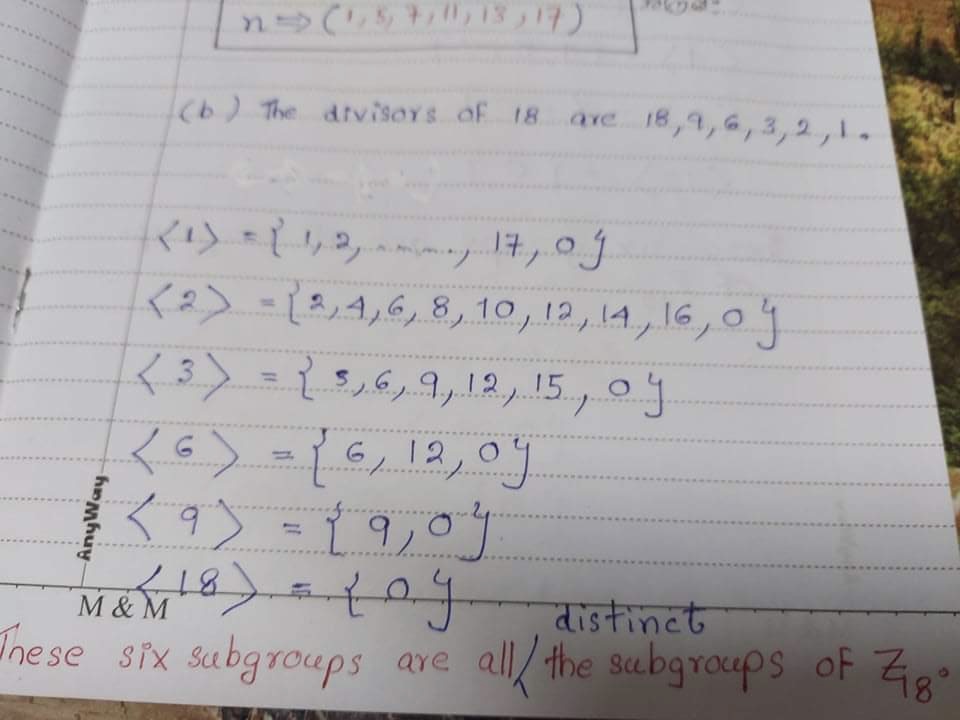 n ⇒ (1, 5, 7, 11, 13, 17)
(b) The divisors of 18 are 18, 9, 6, 3, 2, 1.
<1> = { 1, 2, ......., 17, 0 }
<2> = { 2, 4, 6, 8, 10, 12, 14, 16, 0 }
<3> = { 3, 6, 9, 12, 15, 0 }
<6> = { 6, 12, 0 }
<9> = { 9, 0 }
<18> = { 0 }
AnyWay
M & M
distinct
These six subgroups are all/ the subgroups of Z18.